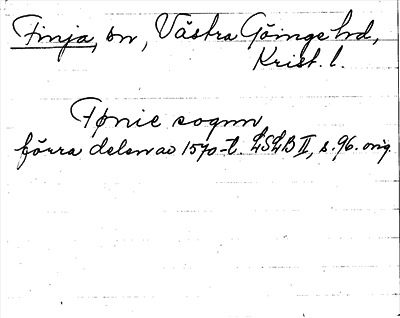 Finja, sn, Västra Göinge hd,
Krist. l.
Tønie sognn
förra delen av 1570-t. LSLB II, s. 96. orig.